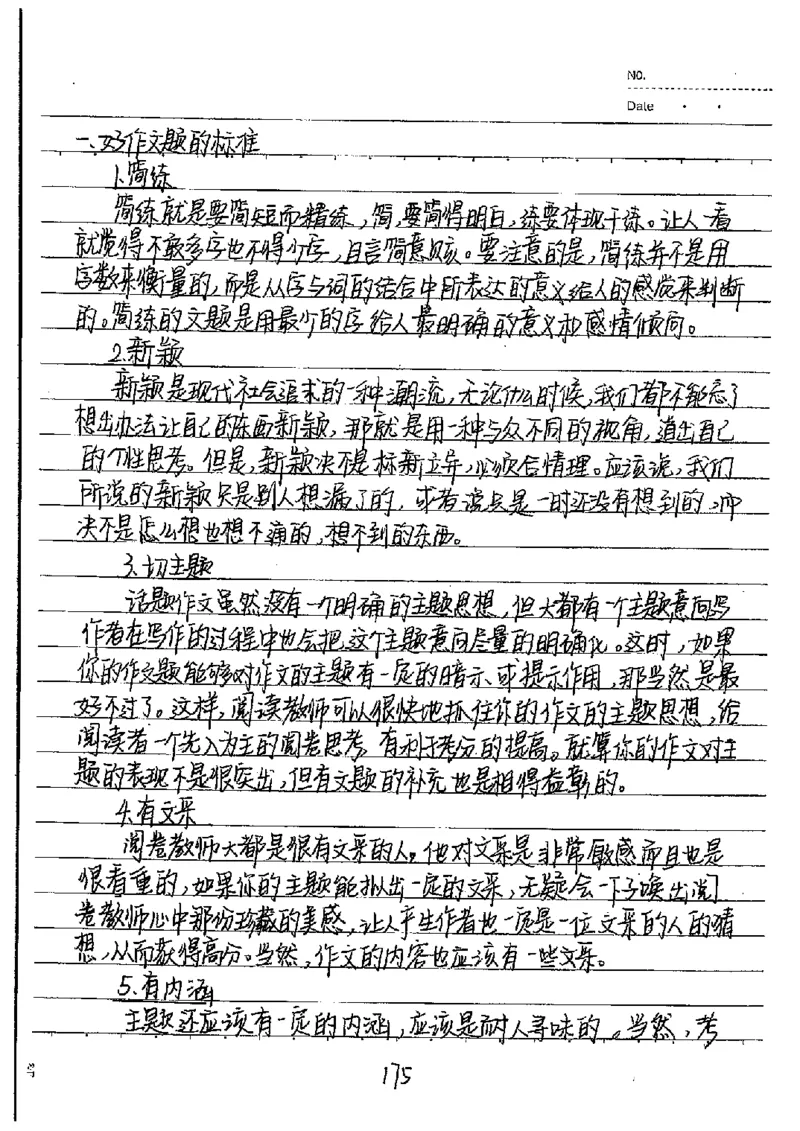 NO.
Date
一、好作文题的标准
1.简练
简练就是要简短而精练,简,要简得明白,练要体现干练。让人一看
就觉得不敢多字也不得少字,且言简意赅。要注意的是,简练并不是用
字数来衡量的,而是从字与词的结合中所表达的意义给人的感觉来判断
的。简练的文题是用最少的字给人最明确的意义和感情倾向。
2.新颖
新颖是现代社会追求的一种潮流,无论什么时候,我们都不能忘了
想出办法让自己的东西新颖,那就是用一种与众不同的视角,道出自己
的个性思考。但是,新颖决不是标新立异,必须合情理。应该说,我们
所说的新颖只是别人想漏了的,或者说只是一时还没有想到的,
决不是怎么想也想不通的,想不到的东西。
3.切主题
话题作文虽然没有一个明确的主题思想,但大都有一个主题意向写
作者在写作的过程中也会把这个主题意向尽量的明确化。这时,如果
你的作文题能够对作文的主题有一定的暗示或提示作用,那当然是最
好不过了。这样,阅读教师可以很快地抓住你的作文的主题思想,给
阅读者一个先入为主的阅卷思考,有利于考分的提高。就算你的作文对主
题的表现不是很突出,但有文题的补充也是相得益彰的。
4.有文采
阅卷教师大都是很有文采的人,他对文采是非常敏感而且也是
很看重的,如果你的主题能拟出一定的文采,无疑会一下子唤出阅
卷教师心中那份珍藏的美感,让人产生作者也一定是一位文采的人的猜
想,从而获得高分。当然,作文的内容也应该有一些文采。
5.有内涵
主题还应该有一定的内涵,应该是耐人寻味的。当然,考
175